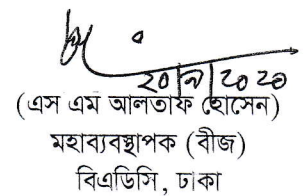 ২০|৭|২০২০
(এস এম আলতাফ হোসেন)
মহাব্যবস্থাপক (বীজ)
বিএডিসি, ঢাকা